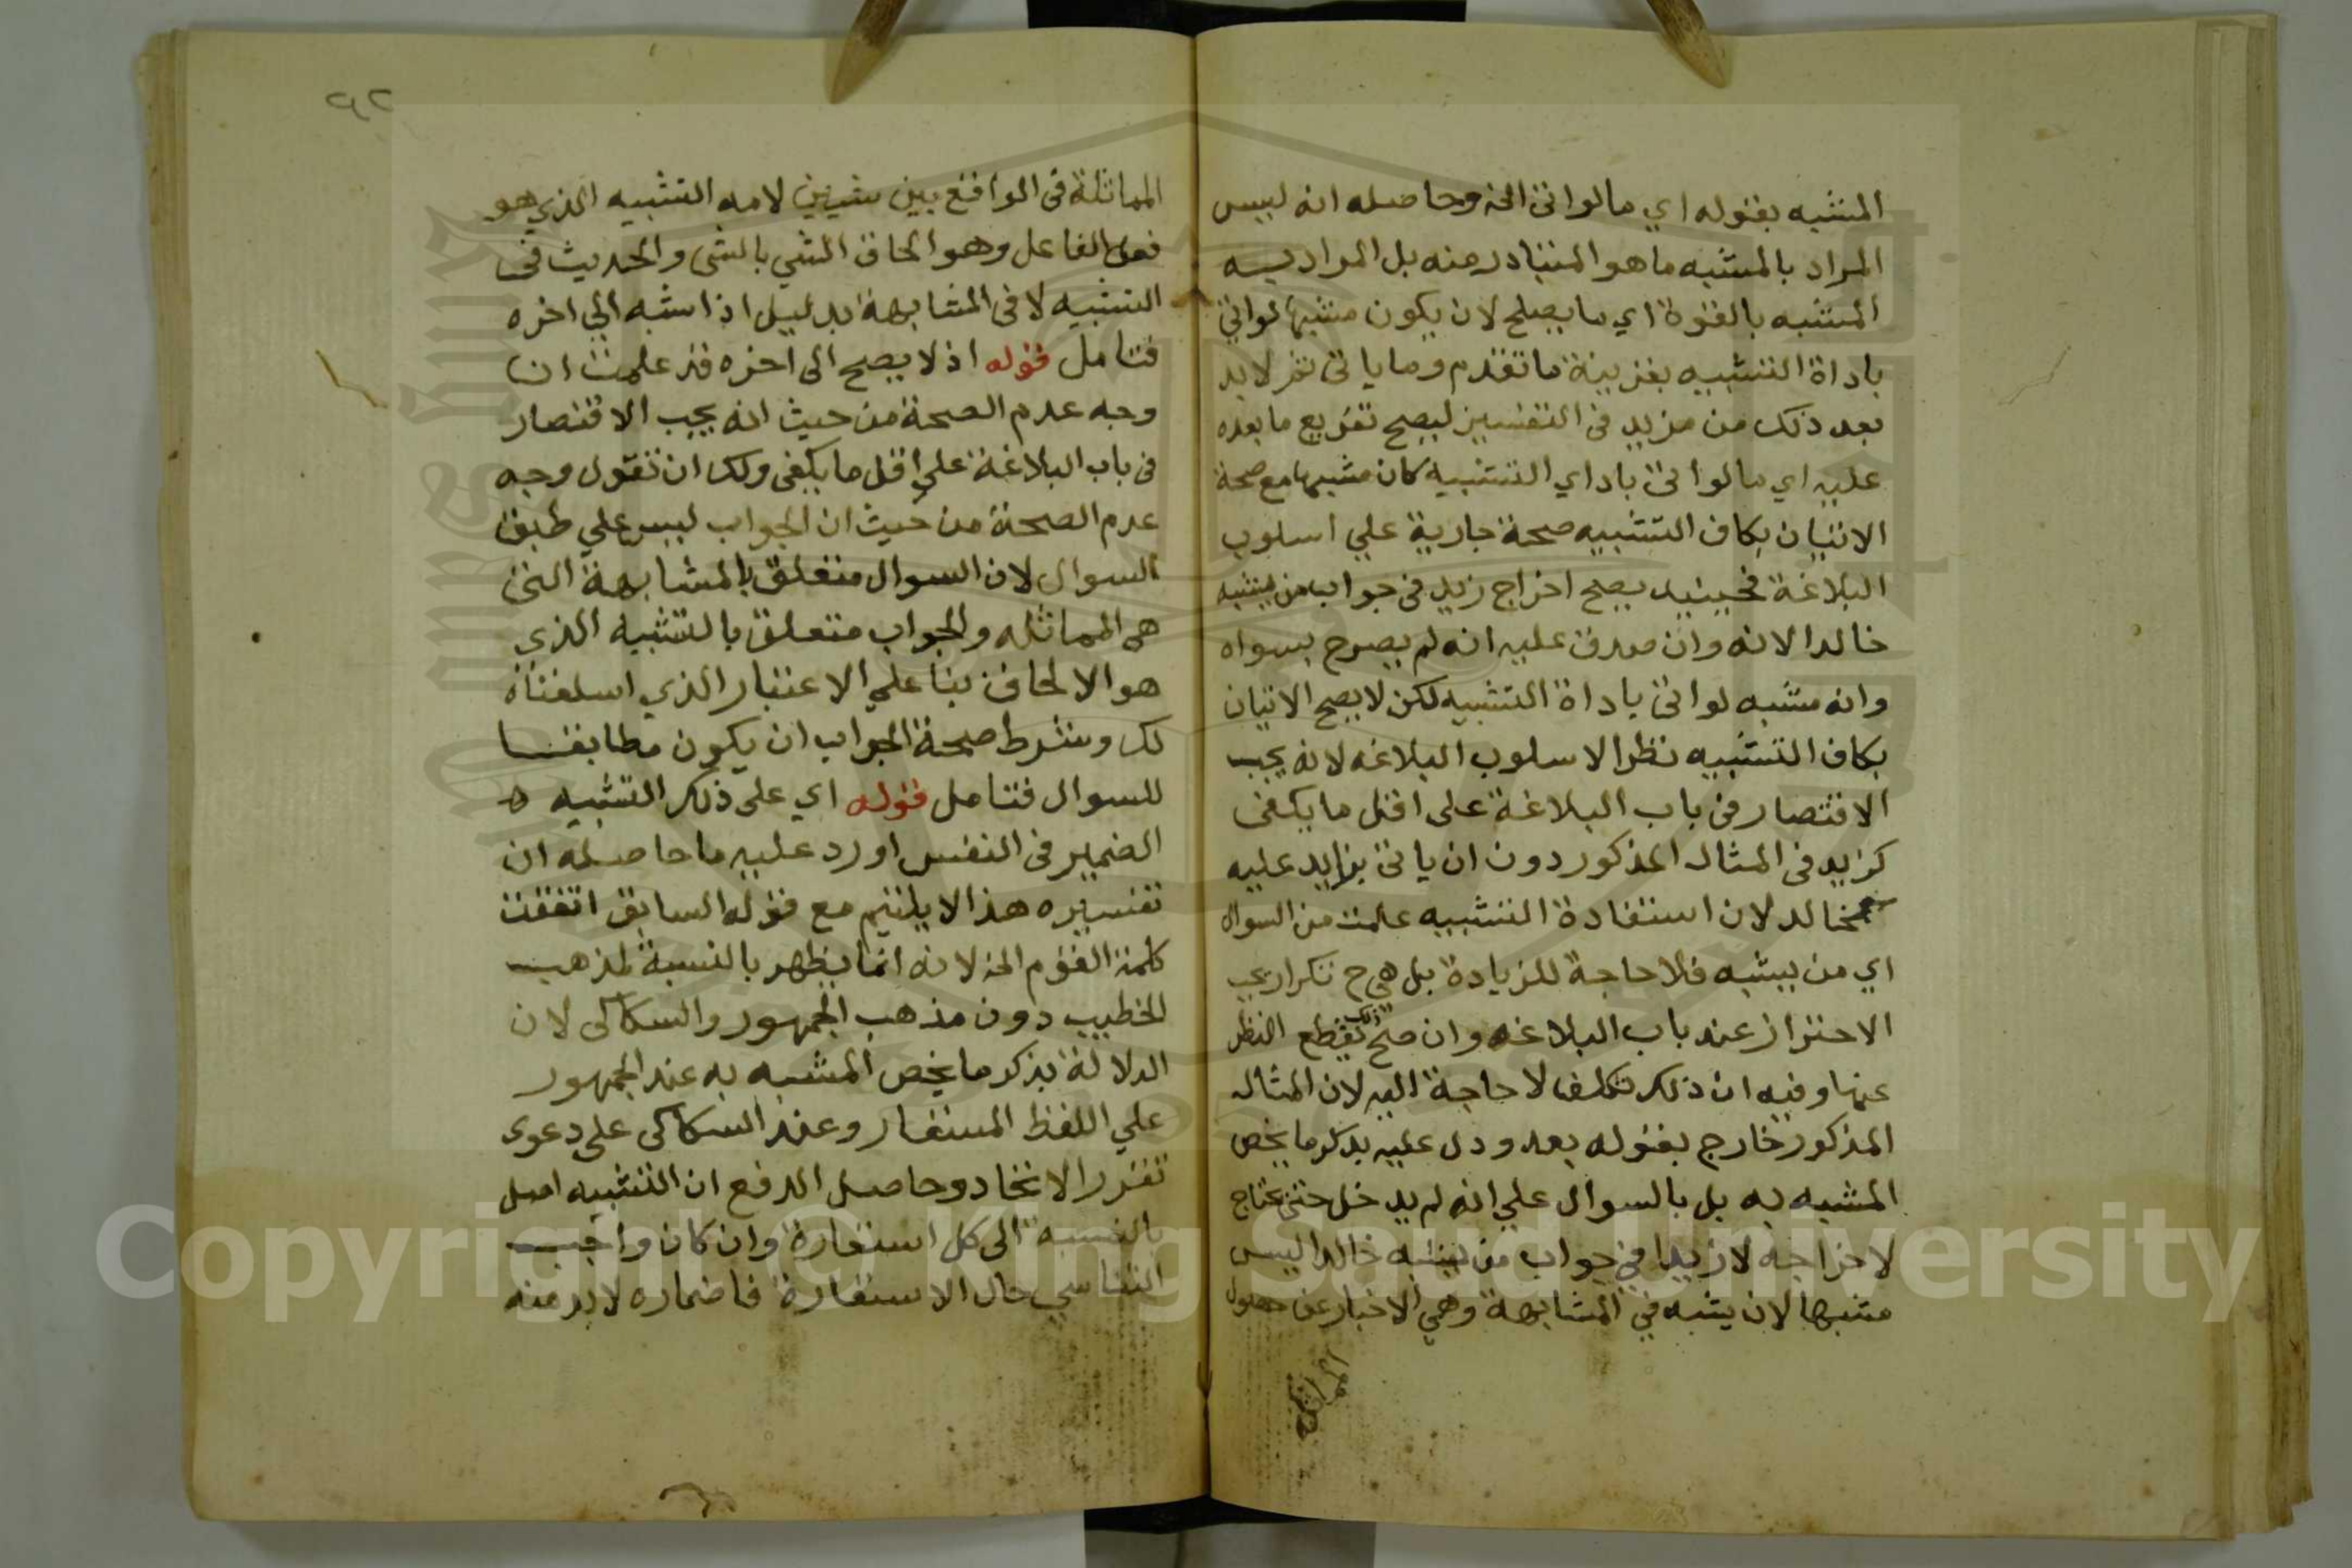 المشبه بقوله اي ما لو اتى الخ وحاصله انه ليس
المراد بالمشبه ما هو المتبادر منه بل المراد به
المشبه بالقوة اي ما يصلح لان يكون مشبها لو اتي
باداة التشبيه بقرينة ما تقدم وما ياتى ثم لا بد
بعد ذلك من مزيد فى التفسير ليصح تفريع ما بعده
عليه اي ما لو اتى باداي التشبيه كان مشبها مع صحة
الاتيان بكاف التشبيه صحة جارية علي اسلوب
البلاغة فحينيد يصلح اخراج زيد فى جواب من يشبه
خالدا لانه وان صدق عليه انه لم يصرح بسواه
وانه مشبه لو اتى باداة التشبيه لكن لا يصح الاتيان
بكاف التشبيه نظرا لاسلوب البلاغه لانه يجب
الاقتصار فى باب البلاغة على اقل ما يكفى
كزيد فى المثال المذكور دون ان ياتى بزايد عليه
كخالد لان استفادة التشبيه علمت من السوال
اي من يشبه فلا حاجة للزيادة بل هي ح تكرار يجب
الاحتراز عند باب البلاغه وان صح ذلك بقطع النظر
عنها وفيه ان ذلك تكلف لا حاجة اليه لان المثال
المذكور خارج بقوله بعد ودل عليه بذكر ما يخص
المشبه به بل بالسوال علي انه لم يدخل حتى يحتاج
لاخراجه لان زيدا في جواب من يشبه خالدا ليس
مشبها لان يشبه في المشابهة وهي الاخبار عن حصول
المماثلة
٩٢
المماثلة فى الواقع بين شيئين لا من التشبيه الذي هو
فعل الفاعل وهو الحاق الشي بالشى والحديث فى
التشبيه لا فى المشابهة بدليل اذا شبه الي اخره
فتامل قوله اذ لا يصح الى اخره قد علمت ان
وجه عدم الصحة من حيث انه يجب الاقتصار
فى باب البلاغة علي اقل ما يكفى ولك ان تقول وجه
عدم الصحة من حيث ان الجواب ليس علي طبق
السوال لان السوال متعلق بالمشابهة التى
هى المماثله والجواب متعلق بالتشبيه الذي
هو الالحاق بنا علي الاعتبار الذي اسلفناه
لك وشرط صحة الجواب ان يكون مطابقا
للسوال فتامل قوله اي على ذلك التشبيه ه
الضمير فى النفس اورد عليه ما حاصله ان
تفسيره هذا لا يلتيم مع قوله السابق اتفقت
كلمة القوم الخ لانه انما يظهر بالنسبة لمذهب
الخطيب دون مذهب الجمهور والسكاكى لان
الدلالة بذكر ما يخص المشبه به عند الجمهور
علي اللفظ المستعار وعند السكاكى على دعوى
تقرر الاتحاد وحاصل الدفع ان التشبيه اصل
بالنسبه الى كل استعارة وان كان واجب
التناسي حال الاستعارة فاضماره لا بد منه